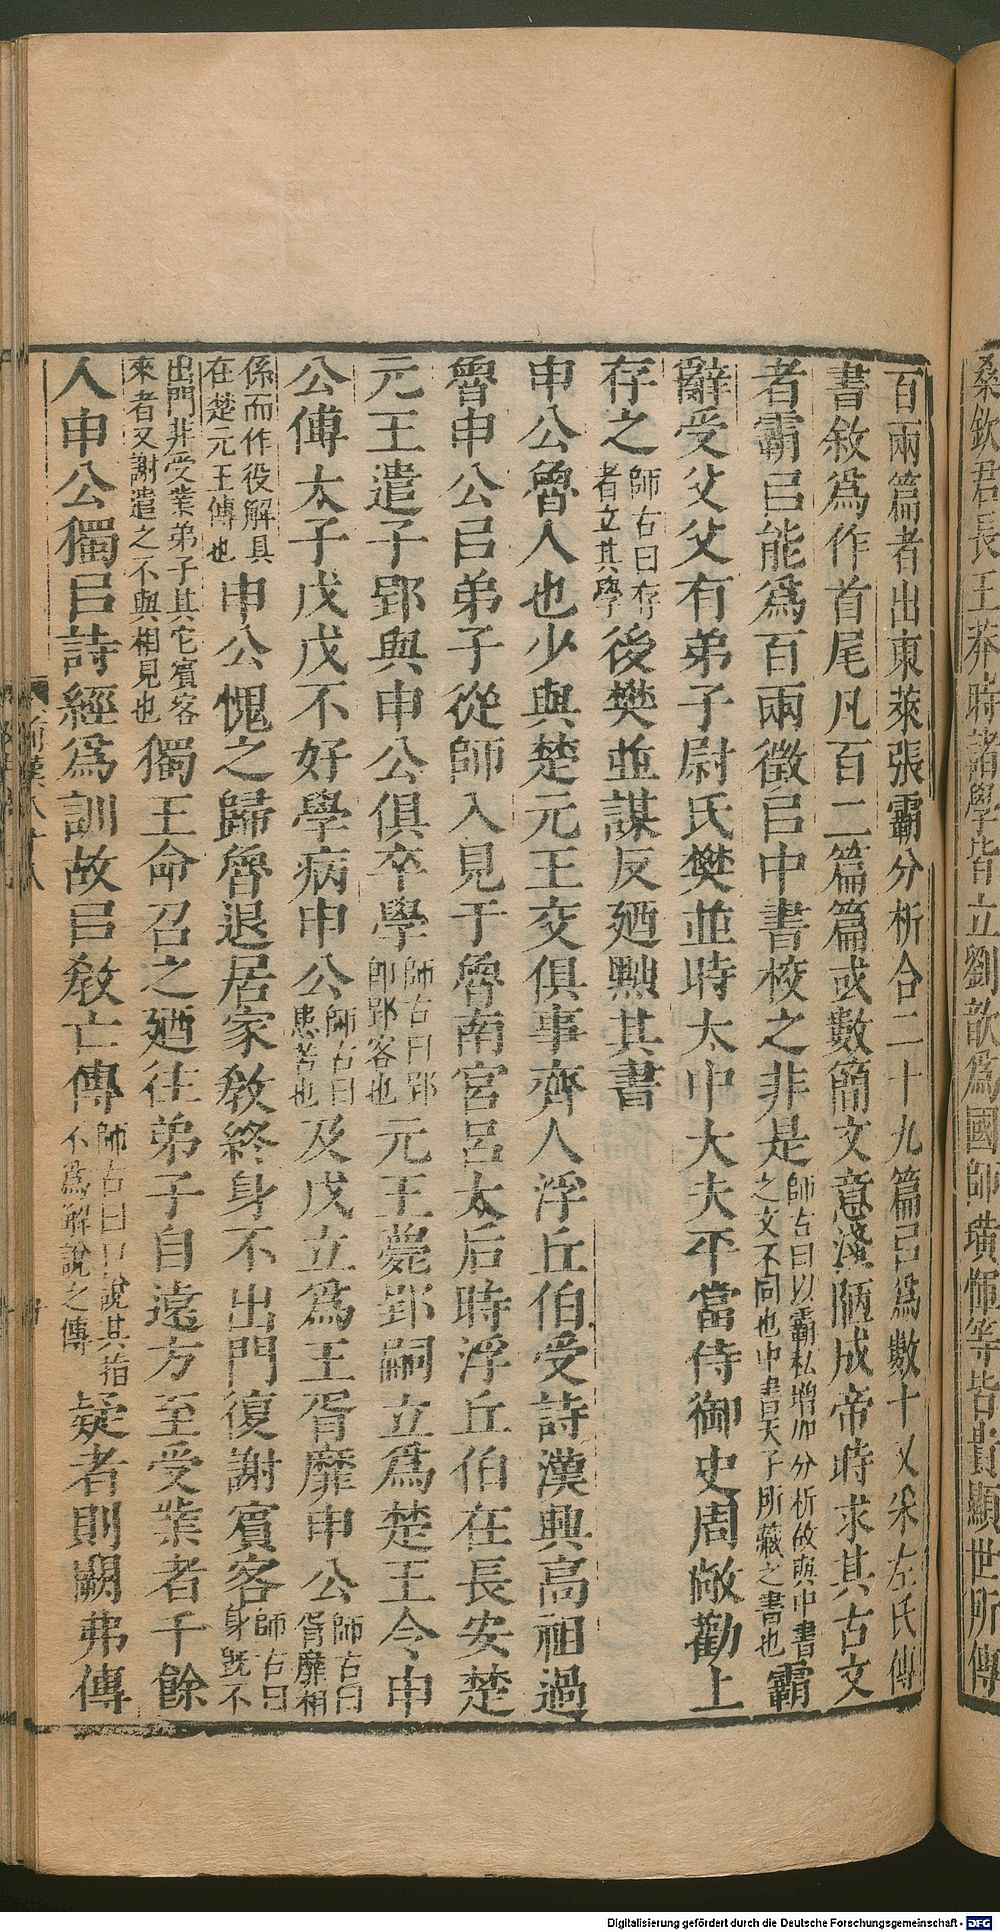 桑欽君長王莽時諸學皆立劉歆爲國師璜惲等皆貴顯世所傳
百兩篇者出東萊張霸分析合二十九篇㠯爲數十又采左氏傳
書敘爲作首尾凡百二篇篇或數簡文意淺陋成帝時求其古文
者霸㠯能爲百兩徵㠯中書校之非是師古曰以霸私增加分析故與中書之文不同也中書天子所藏之書也霸
辭受父父有弟子尉氏樊並時太中大夫平當侍御史周敞勸上
存之師古曰存者立其學後樊並謀反廼黜其書
申公魯人也少與楚元王交俱事齊人浮丘伯受詩漢興高祖過
魯申公㠯弟子從師入見于魯南宮呂太后時浮丘伯在長安楚
元王遣子郢與申公俱卒學師古曰郢卽郢客也元王薨郢嗣立爲楚王令申
公傅太子戊戊不好學病申公師古曰患苦也及戊立爲王胥靡申公師古曰胥靡相
係而作役解具在楚元王傳也申公愧之歸魯退居家敎終身不出門復謝賓客師古曰身旣不
出門非受業弟子其它賓客來者又謝遣之不與相見也獨王命召之廼往弟子自遠方至受業者千餘
人申公獨㠯詩經爲訓故㠯敎亡傳師古曰口說其指不爲解說之傳疑者則闕弗傳
前漢八十八